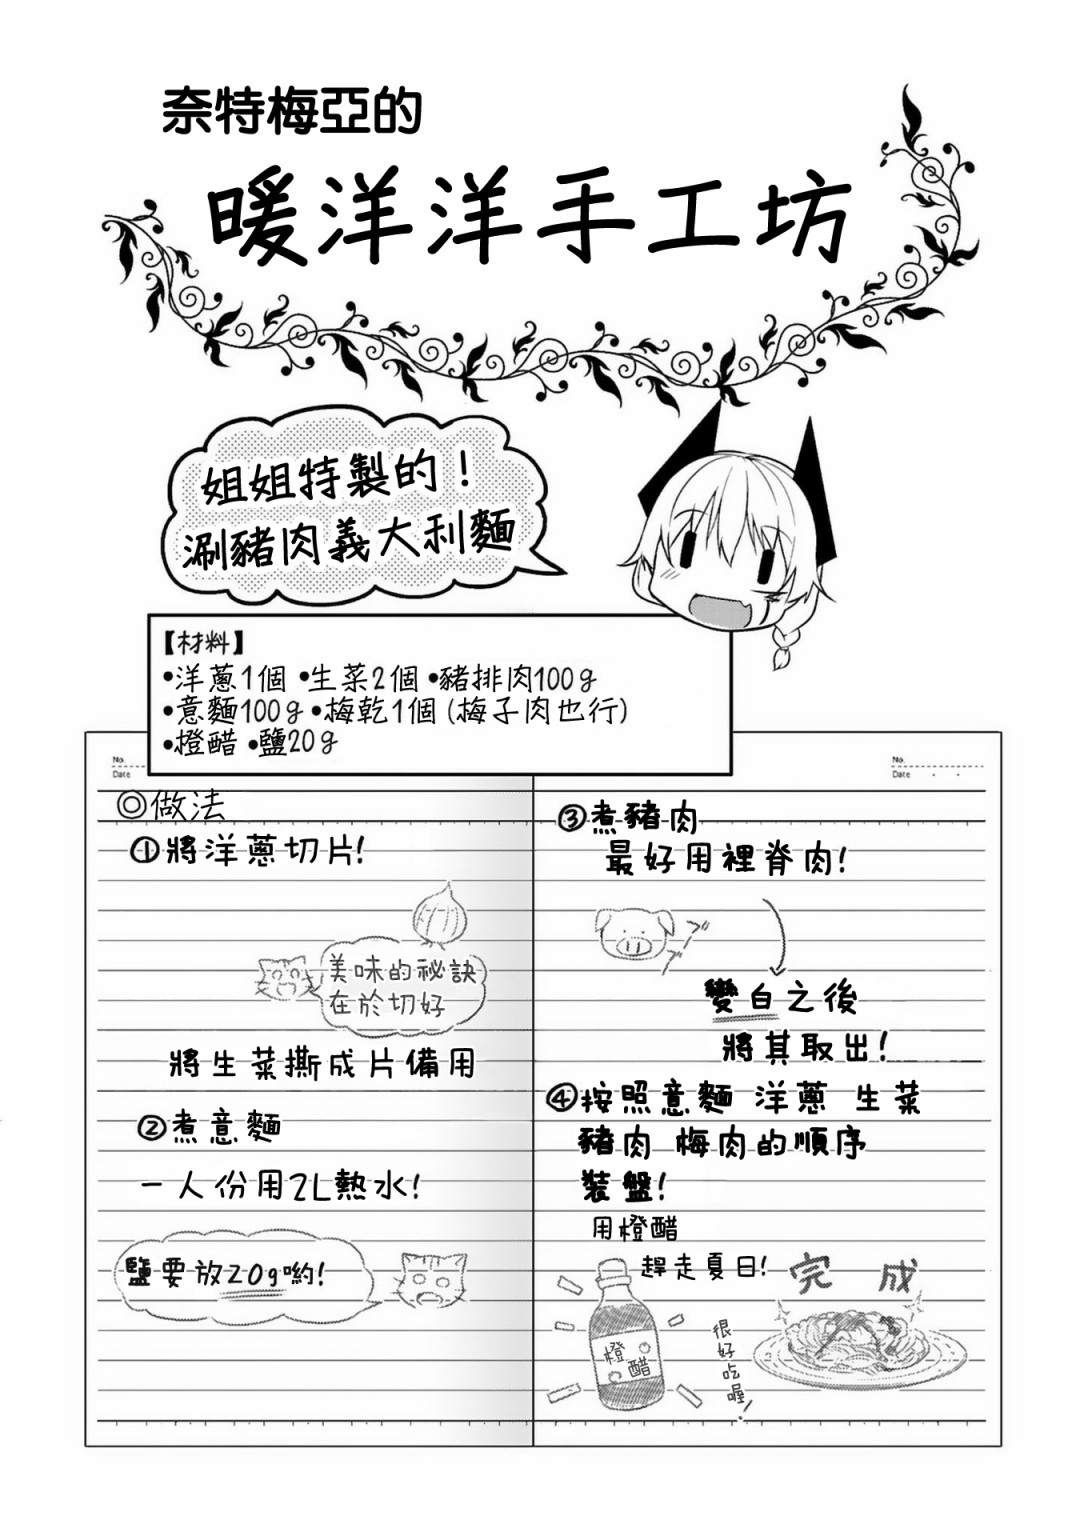 奈特梅亞的
暖洋洋手工坊
姐姐特製的！
涮豬肉義大利麵
【材料】
•洋蔥1個 •生菜2個 •豬排肉100g
•意麵100g •梅乾1個 (梅子肉也行)
•橙醋 •鹽20g
No.
Date
No.
Date
◎做法
①將洋蔥切片!
美味的秘訣
在於切好
將生菜撕成片備用
②煮意麵
一人份用2L熱水!
鹽要放20g喲!
③煮豬肉
最好用裡脊肉!
變白之後
將其取出!
④按照意麵 洋蔥 生菜
豬肉 梅肉的順序
裝盤!
用橙醋
趕走夏日!
橙醋
很好吃喔!
完成